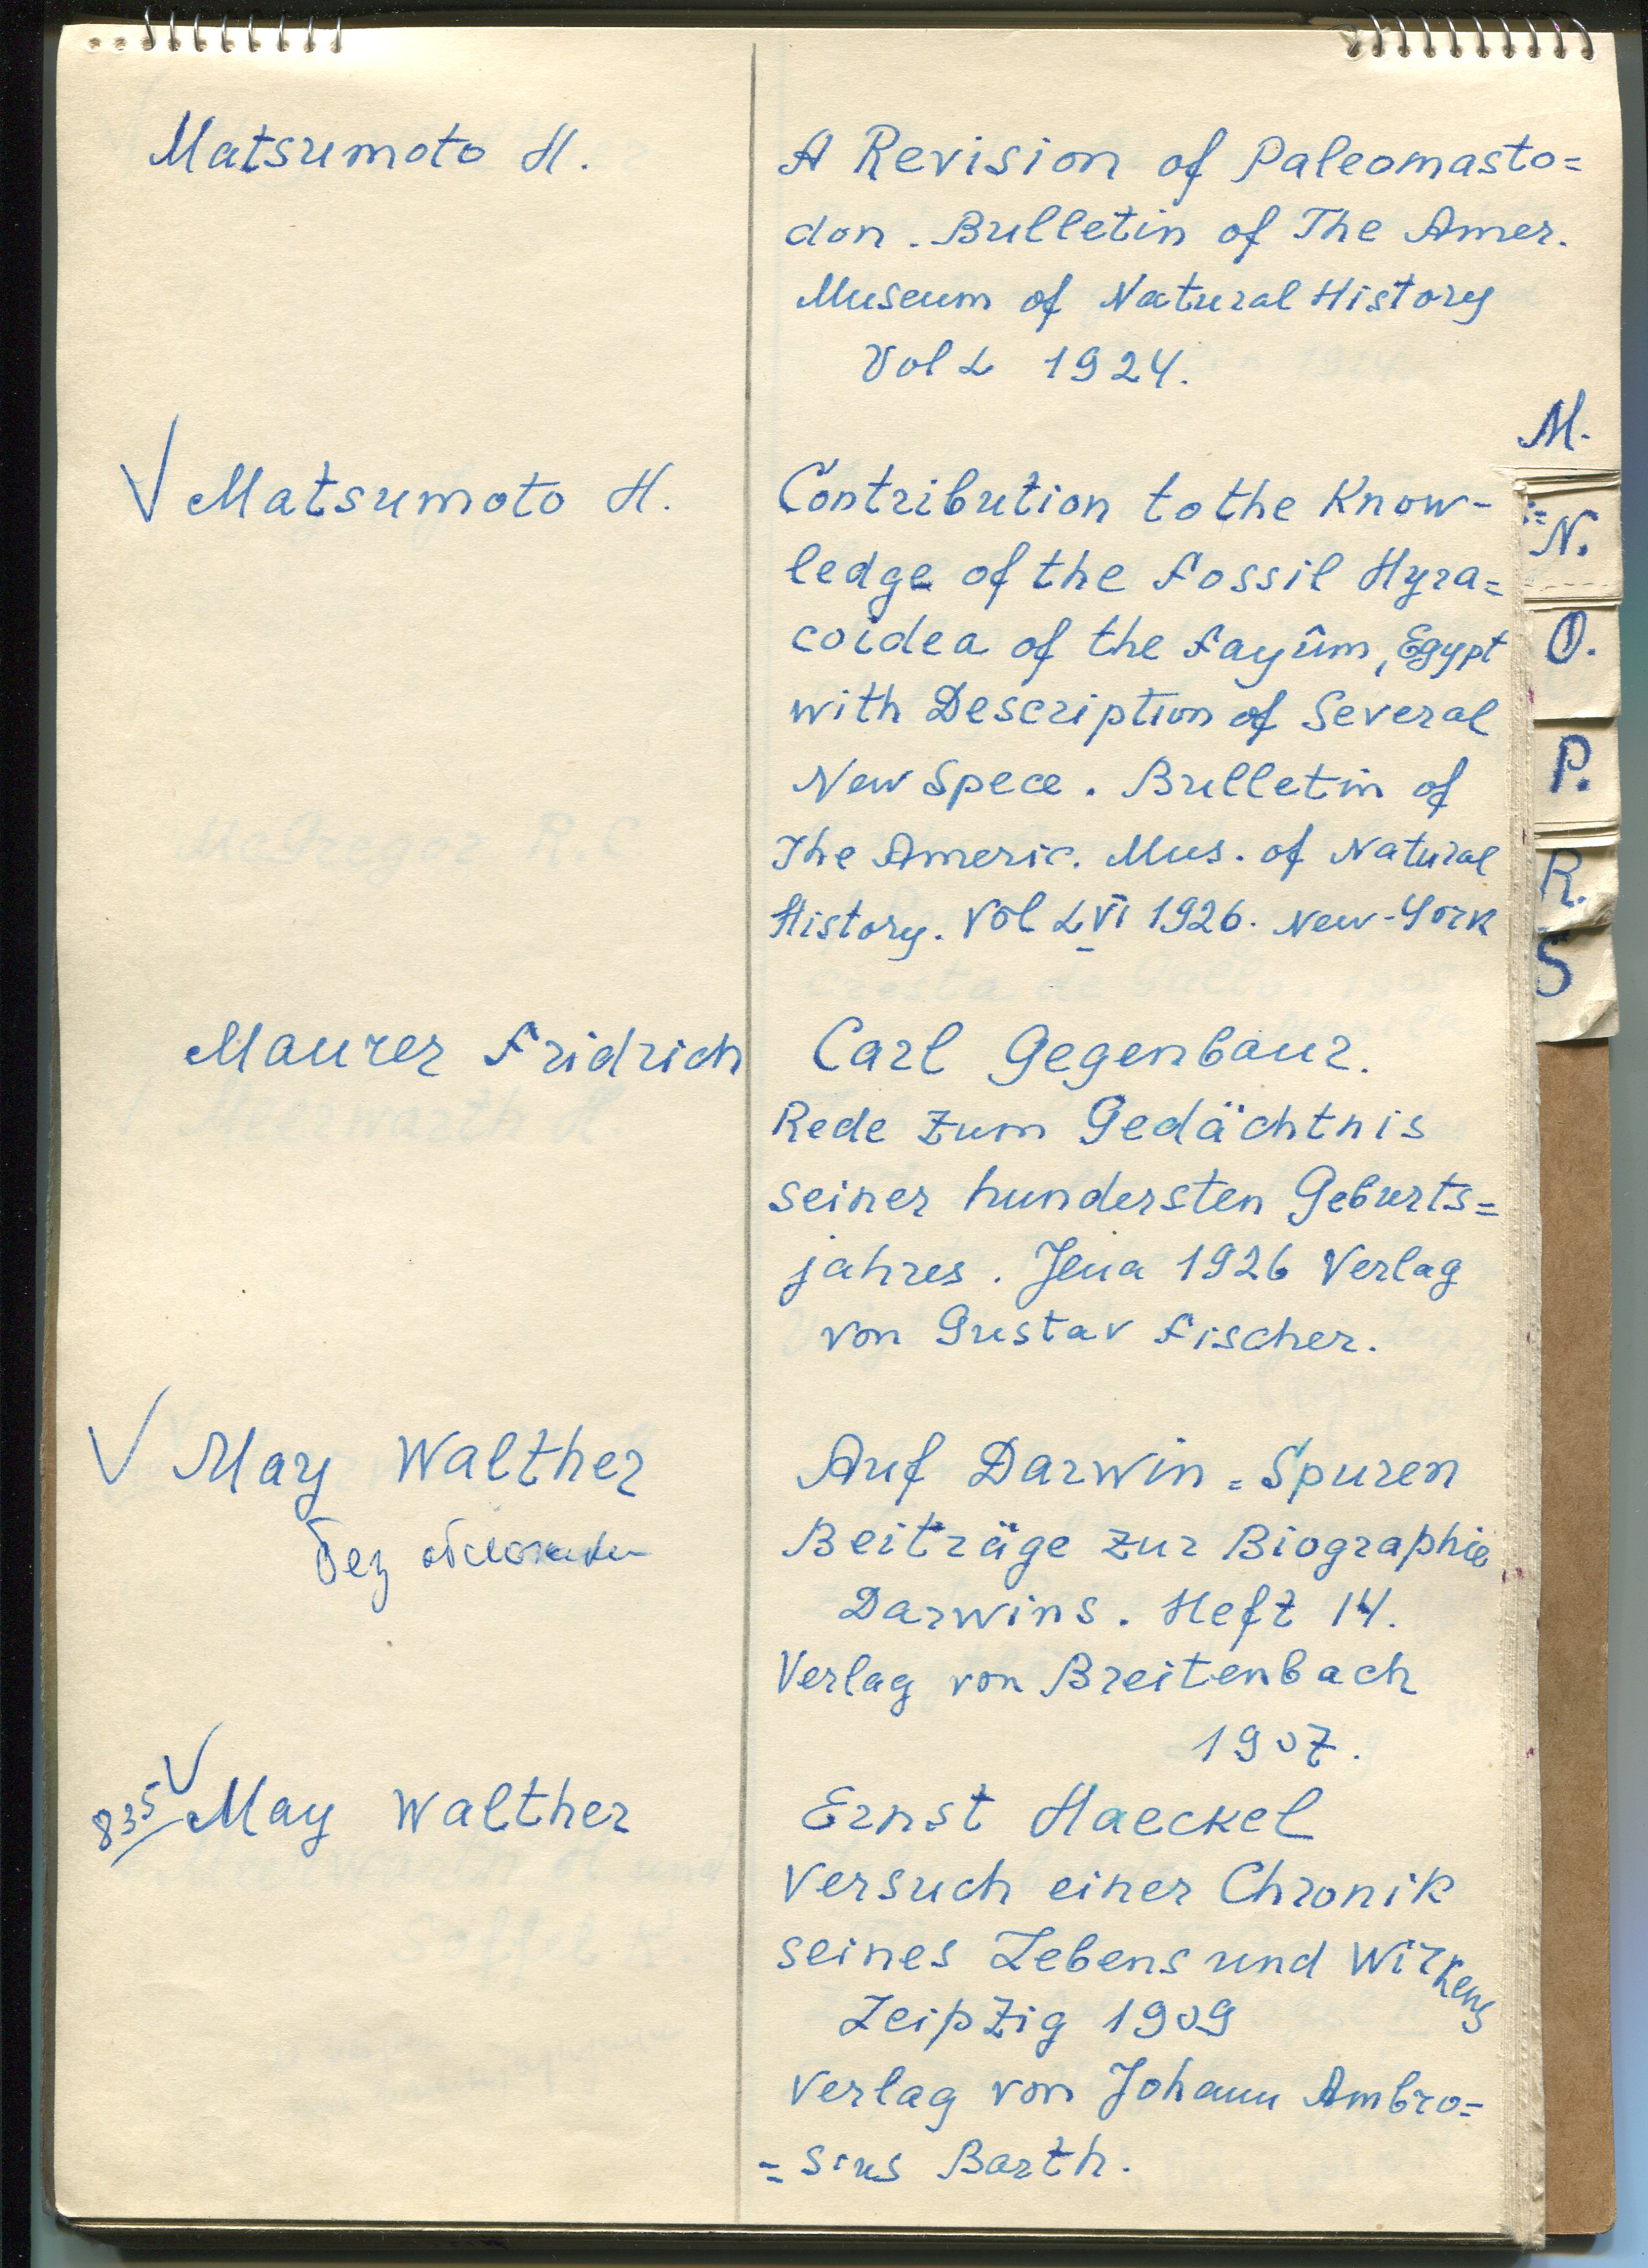 Matsumoto H.
A Revision of Paleomasto=
don. Bulletin of The Amer.
Museum of Natural History
Vol L 1924.
√ Matsumoto H.
Contribution to the Know-
ledge of the Fossil Hyra=
coidea of the Fayûm, Egypt
with Description of Several
New Spece. Bulletin of
The Americ. Mus. of Natural
History. Vol LVI 1926. New-York
Maurer Fridrich
Carl Gegenbaur.
Rede zum Gedächtnis
seiner hundersten Geburts=
jahres. Jena 1926 Verlag
von Gustav Fischer.
√ May Walther
без обложки
Auf Darwin=Spuren
Beiträge zur Biographie
Darwins. Heft 14.
Verlag von Breitenbach
1907.
835 √ May Walther
Ernst Haeckel
Versuch einer Chronik
seines Lebens und Wirkens
Leipzig 1909
Verlag von Johann Ambro=
=sius Barth.
M.
N.
O.
P.
R.
S